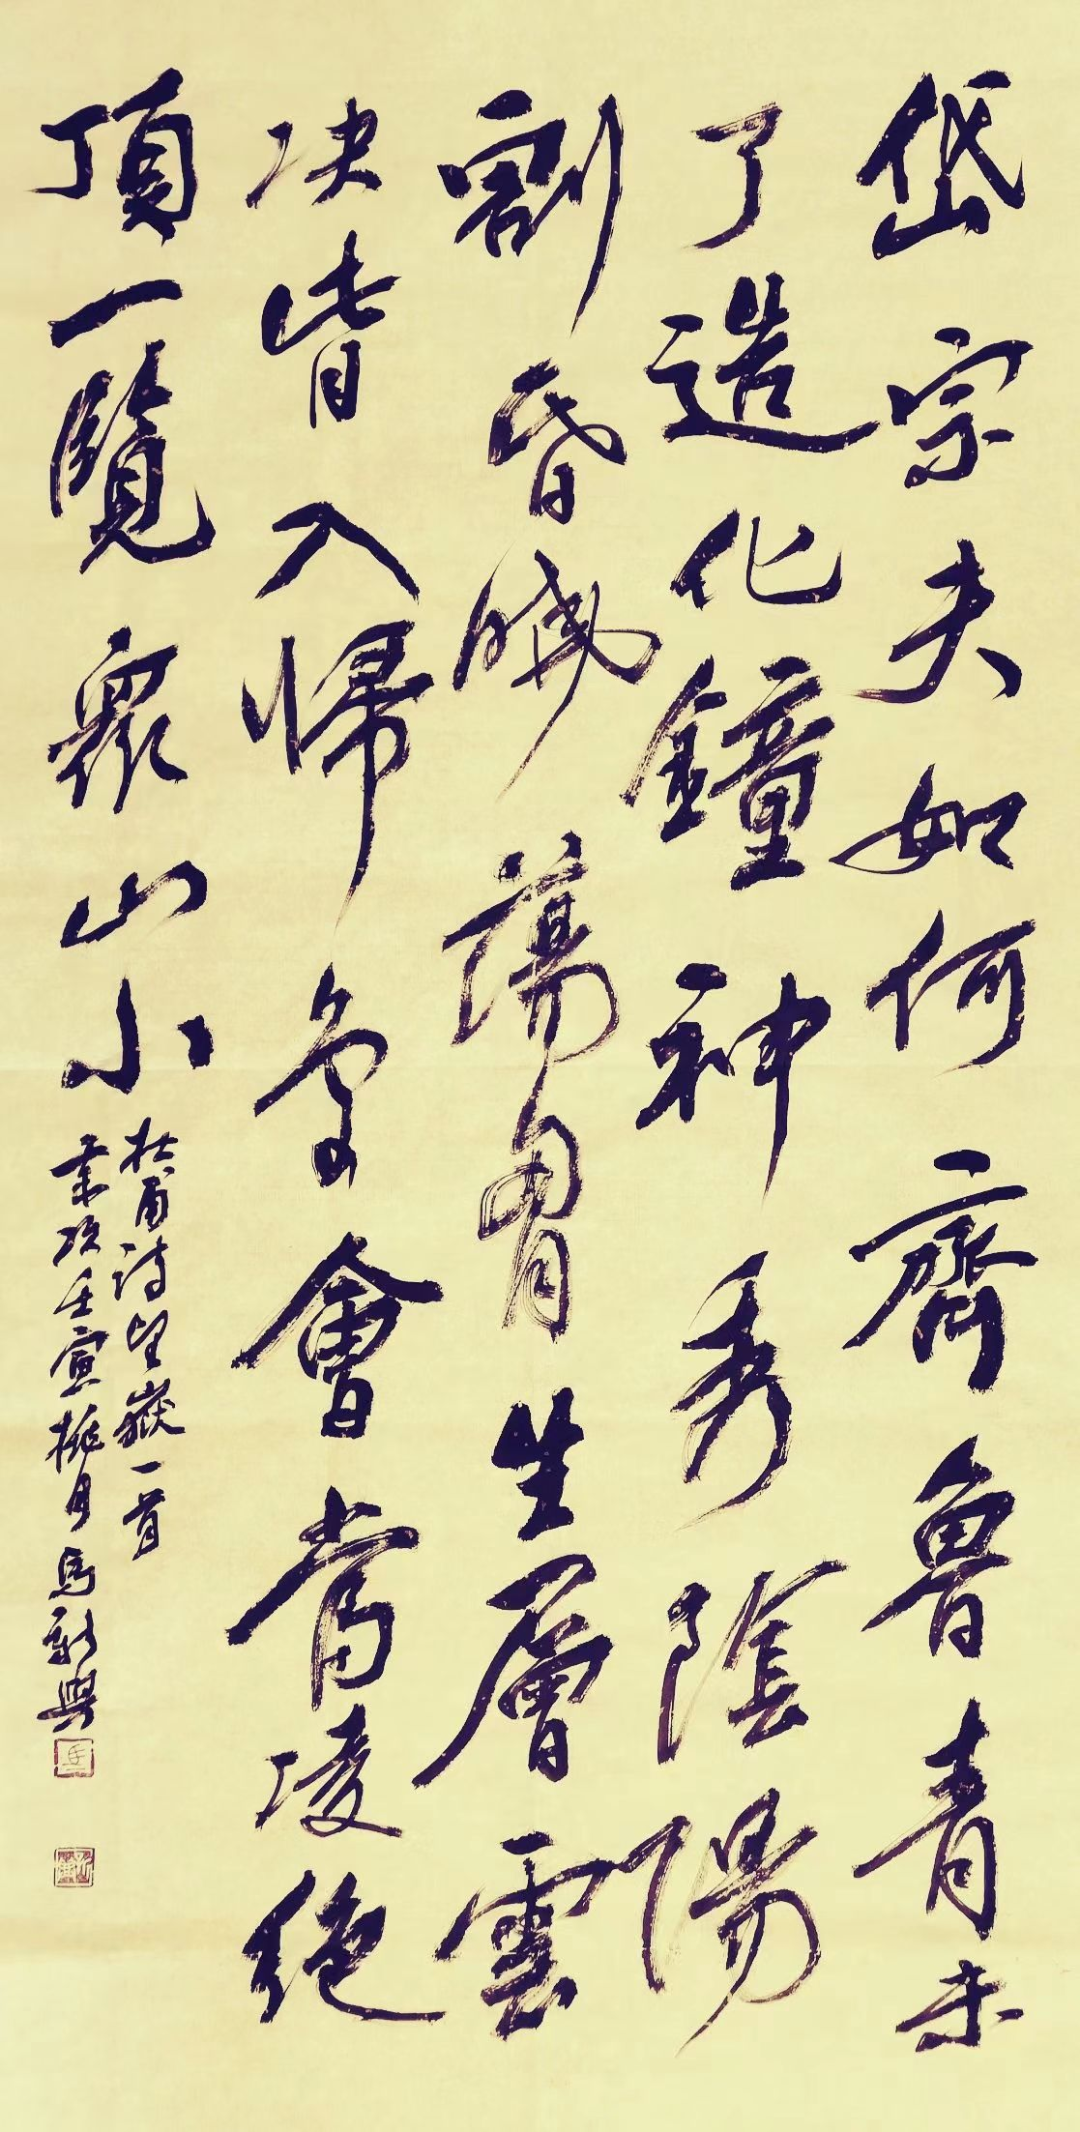 岱宗夫如何齊魯青未
了造化鐘神秀陰陽
割昏曉蕩胷生層雲
决眥入歸鳥會當凌絕
頂一覽眾山小
杜甫詩望嶽一首
歲次壬寅桃月馬新興